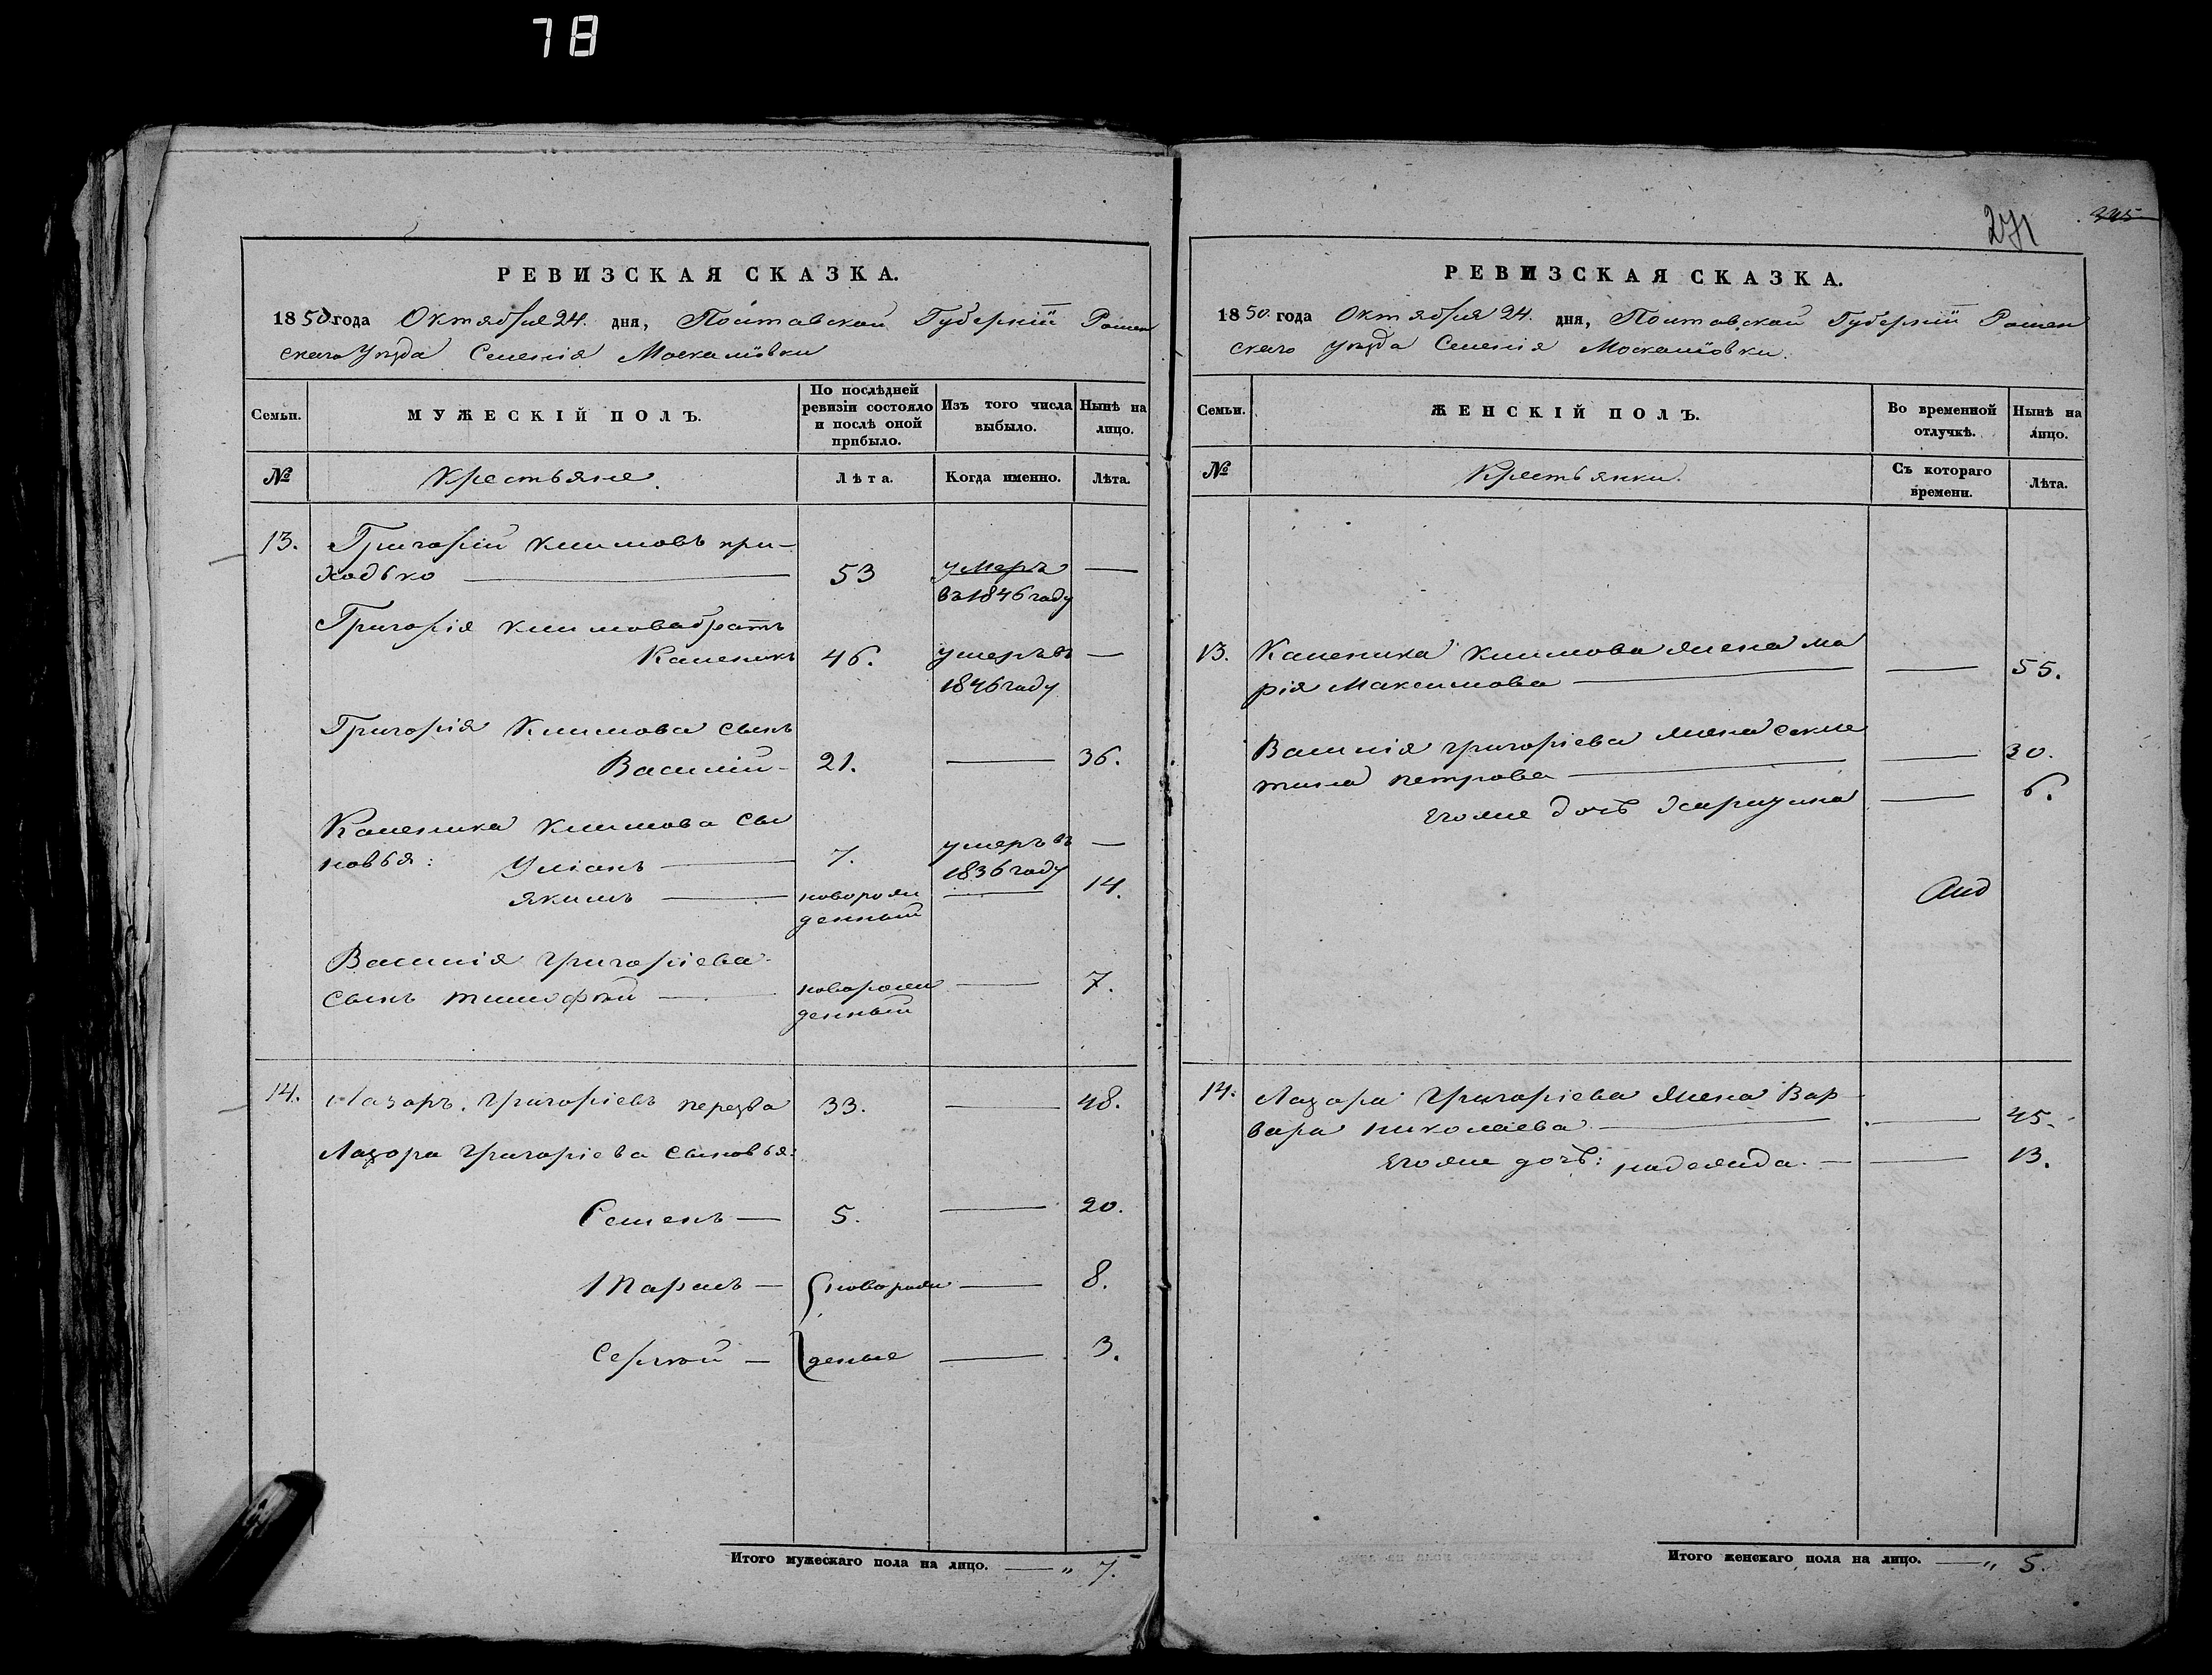 78
РЕВИЗСКАЯ СКАЗКА.
1850 года Октября 24. дня, Полтавской Губерніи Ромен
скаго Уѣзда Селенія Москалювки
Семьи.
МУЖЕСКІЙ ПОЛЪ.
По послѣдней
ревизіи состояло
и послѣ оной
прибыло.
Изъ того числа
выбыло.
Нынѣ на
лицо.
№
Крестьяне.
Лѣта.
Когда именно.
Лѣта.
13. Григорій Климовъ при-
ходько — 53 умеръ —
въ 1846 году
Григорія Климова братъ
Каленикъ 46. умеръ въ —
1846 году
Григорія Климова сынъ
Василій - 21. — 36.
Каленика Климова сы
новья: Уліанъ — 7. умеръ въ —
1836 году
якимъ — новорож — 14.
денный
Василія григоріева
сынъ тимофѣй — новорож — 7.
денный
14. Лазоръ григоріевъ перезва 33. — 48.
Лазора григоріева сыновья:
Семенъ — 5. — 20.
Тарасъ — новорож — 8.
Сергѣй — деные — 3.
Итого мужескаго пола на лицо. — „ 7.
271
325
РЕВИЗСКАЯ СКАЗКА.
1850 года Октября 24. дня, Полтавской Губерніи Ромен
скаго уѣзда Селенія Москалювки.
Семьи.
ЖЕНСКІЙ ПОЛЪ.
Во временной
отлучкѣ.
Нынѣ на
лицо.
№
Крестьянки.
Съ котораго
времени.
Лѣта.
13. Каленика Климова жена ма
рія Максимова — — 55.
Василія григоріева жена секле
тина петрова — — 30.
егоже дочь — 6.
14. Лазора Григоріева жена Вар
вара николаева — — 45.
егоже дочь: надежда. — — 13.
Итого женскаго пола на лицо. — „ 5.